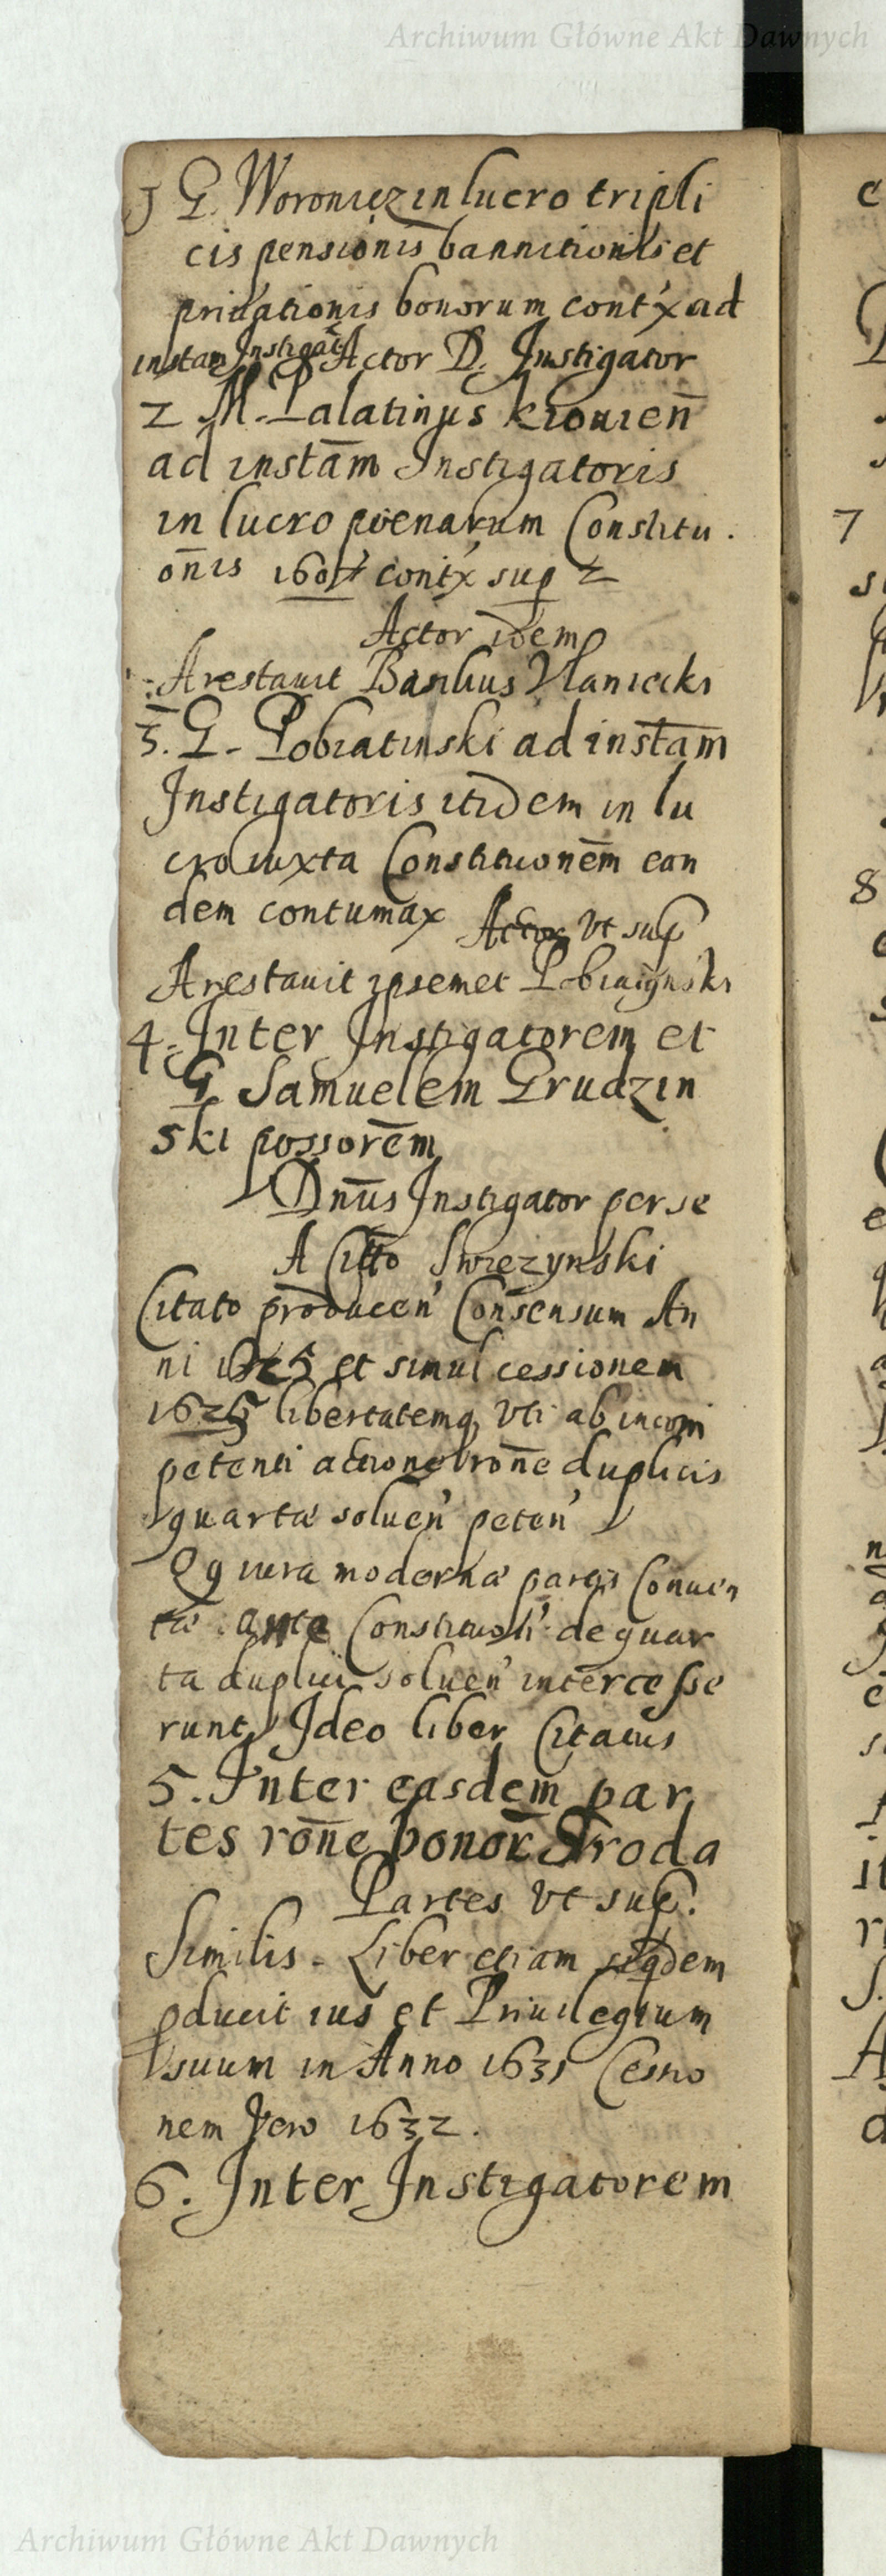 Archiwum Główne Akt Dawnych
1 G. Woronicz in lucro tripli
cis pensionis bannitionis et
privationis bonorum cont'x ad
instan Instigat Actor D. Instigator
2 M. Palatinus kiouien̄
ad instām Instigatoris
in lucro poenarum Constitu.
on̄is 1607 cont'x sup 2
Actor idem
Arestauit Basilius
3. G. Pobiatinski ad instām
Instigatoris itidem in lu
cro iuxta Constitucionēm ean
dem contumax Actor Vt sup
Arestauit ipsemet
4. Inter Instigatorem et
G Samuelem Grudzin
ski possorēm
Dnūs Instigator per se
A Citto Swiezynski
Citato producen' Consensum An
ni et simul cessionem
1625 libertatemq, Vti ab incom
petenti actione ron̄e duplicis
quartæ soluen' peten'
Qq iura modernæ partis Conuen
tæ ante de quar
ta duplici soluen' intercesse
runt, Ideo liber Citatus
5. Inter easdem par
tes ron̄e bonor̄ Sroda
Partes Vt sup.
Similis. Liber etiam sīqdem
pducit ius et Priuilegium
suum in Anno 1631 Cessio
nem Vero 1632.
6. Inter Instigatorem
7
8
Archiwum Główne Akt Dawnych